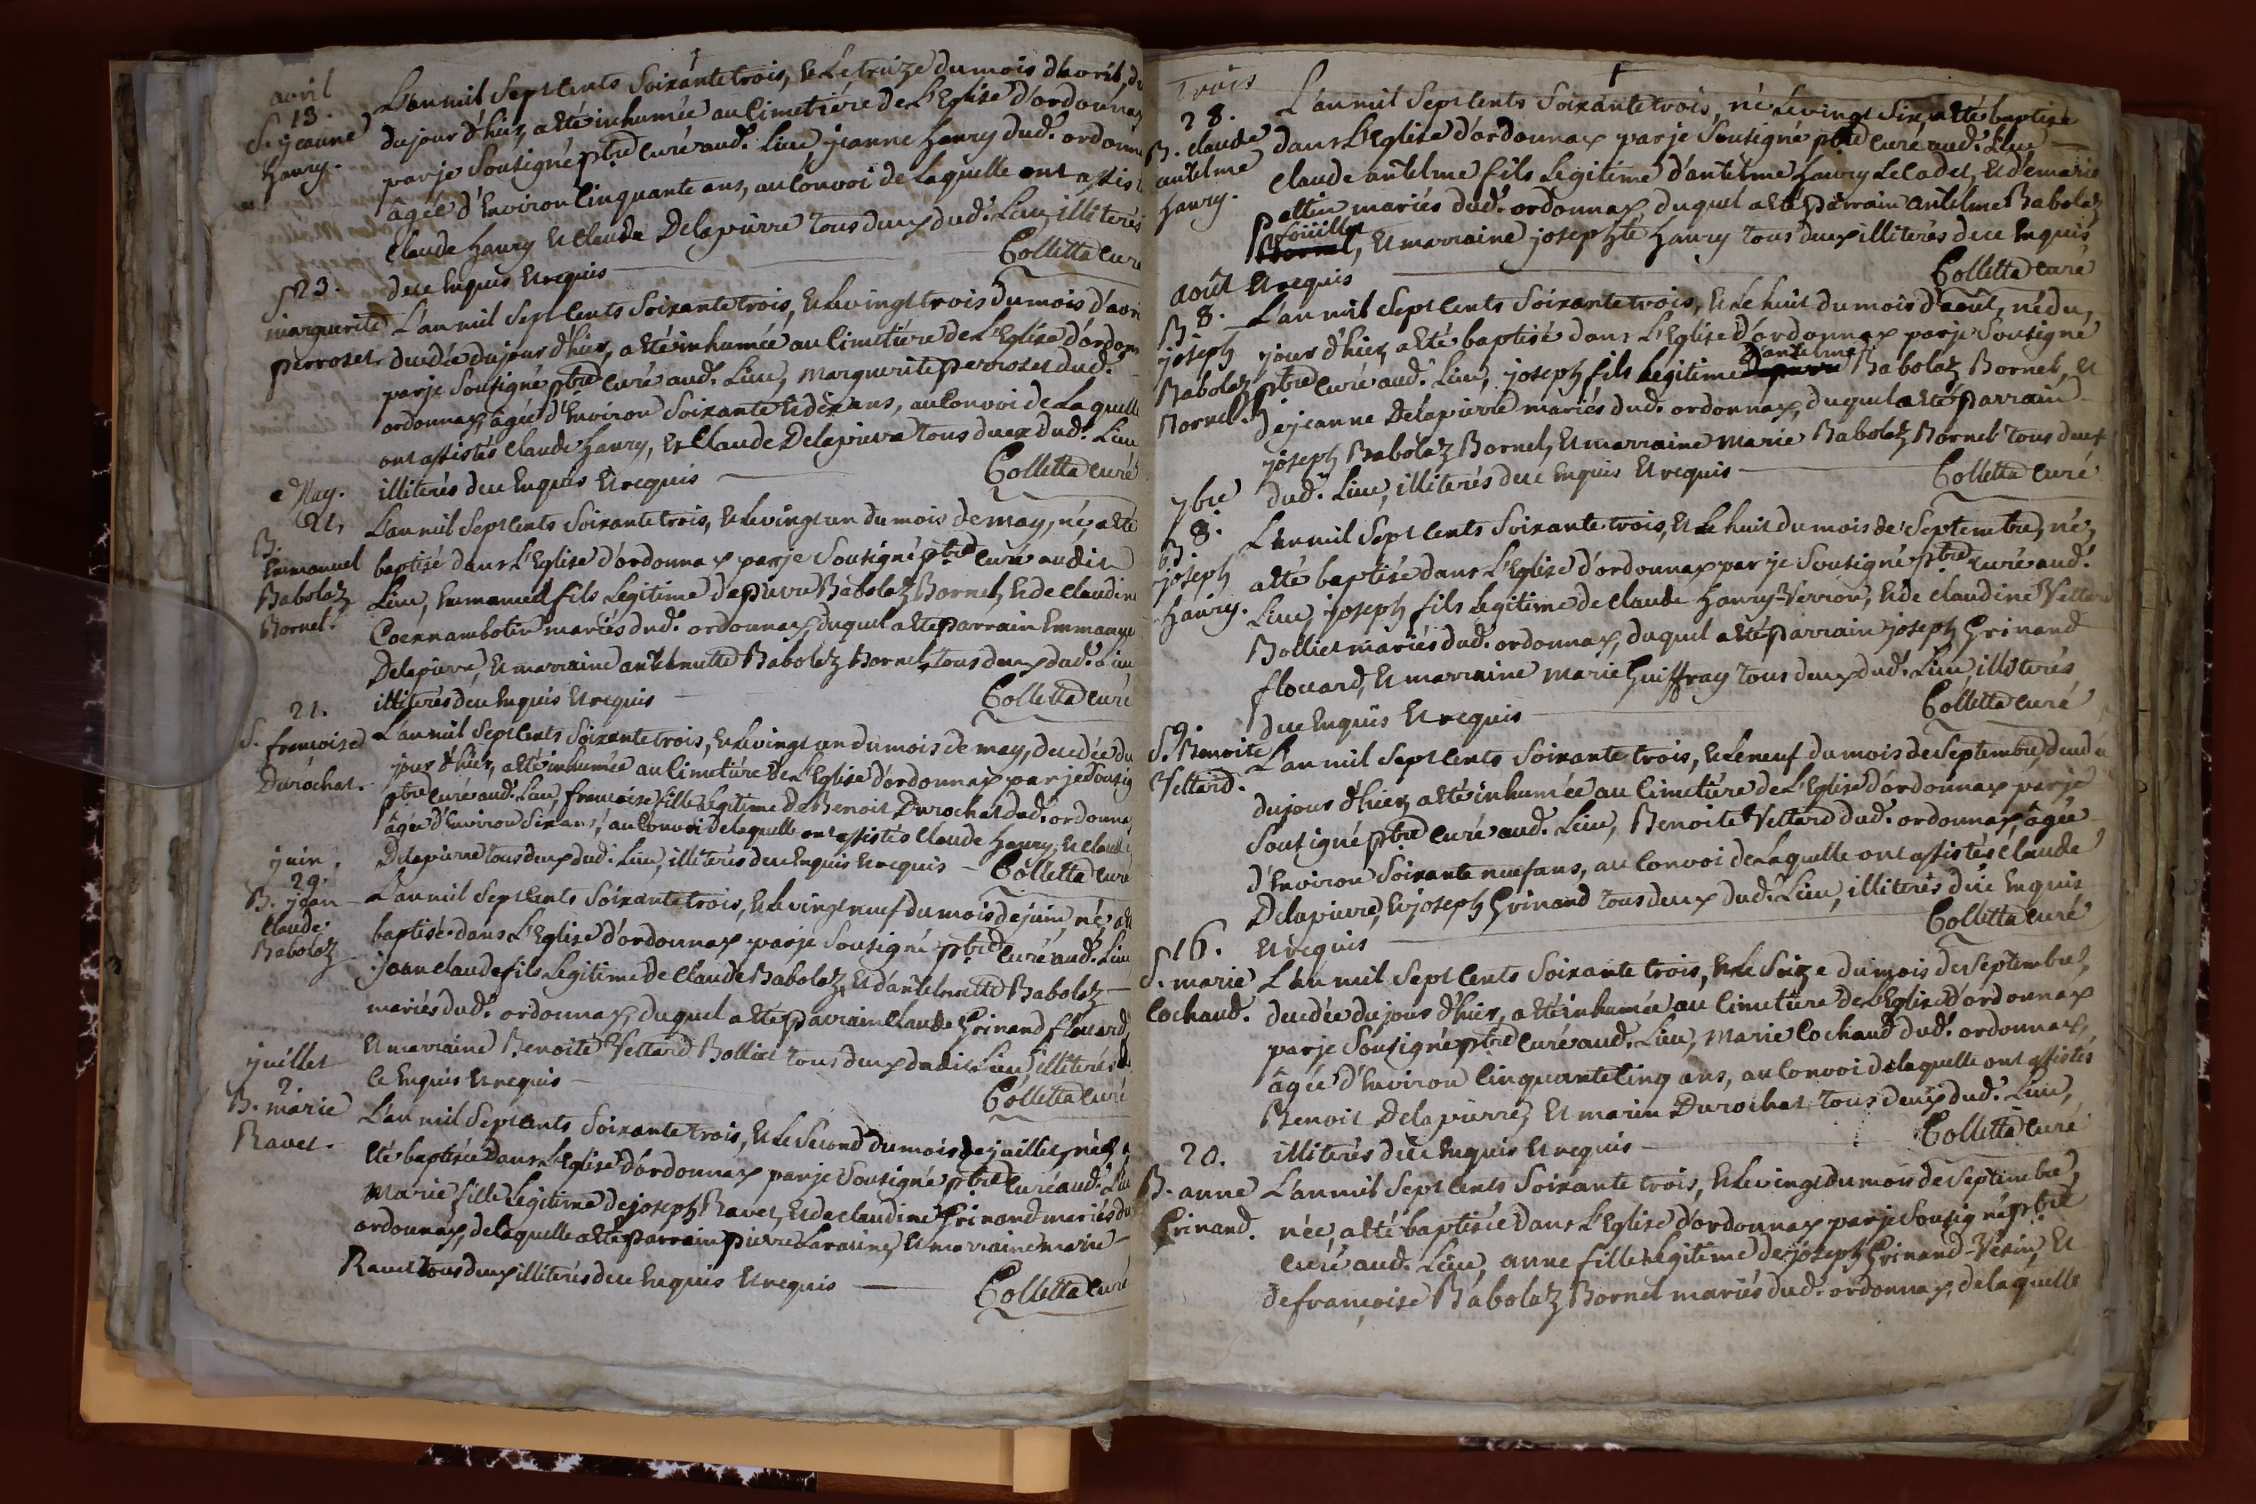 avril
13.
S. jeanne
haury.
L'an mil Sept Cents Soixante trois, et Le treize du mois d'avril,
du jour d'hier, a été inhumée au Cimetiére de L'Eglise d'ordonnax
par je Sousigné ptre Curé aud. Lieu jeanne haury dud. ordonn
âgée d'Environ Cinquante ans, au Convoi de Laquelle ont assist
Claude haury et Claude Delapierre tous deux dud. Lieu illiterés
de ce Enquis et requis
Colletta Curé
S 23.
marguerite
perroset.
L'an mil Sept Cents Soixante trois, et Le vingt trois du mois d'avri
decedée du jour d'hier, a été inhumée au Cimetiére de L'Eglise d'ordonn
par je Sousigné ptre Curé aud. Lieu, marguerite perroset dud.
ordonnax, âgée d'Environ Soixante et dix ans, au Convoi de Laquelle
ont assistés Claude haury, et Claude Delapierre tous deux dud. Lieu
illiterés de ce Enquis et requis
Colletta Curé
May.
21.
B.
Emmanuel
Babolaz
Bornel.
L'an mil Sept Cents Soixante trois, et Le vingt un du mois de may, né, a été
baptisé dans L'Eglise d'ordonnax par je Sousigné ptre Curé audit
Lieu, Emmanuel fils Legitime de pierre Babolaz Bornel, et de Claudine
Coennambotin mariés dud. ordonnax, duquel a été parrain Emmanue
Delapierre, et marraine antelmette Babolaz Bornel, tous deux dud. Lieu
illiterés de ce Enquis et requis
Colletta Curé
21.
S. françoise
Durochat.
L'an mil Sept Cents Soixante trois, et Le vingt un du mois de may, decedée du
jour d'hier, a été inhumée au Cimetiére de L'Eglise d'ordonnax par je Sousig
ptre Curé aud. Lieu, françoise fille Legitime de Benoit Durochat dud. ordonna
âgée d'Environ Six ans, au Convoi de laquelle ont assistés Claude haury, et Claude
Delapierre tous deux dud. Lieu, illiterés de ce Enquis et requis
Colletta Curé
juin.
29.
B. jean
Claude
Babolaz
L'an mil Sept Cents Soixante trois, et Le vingt neuf du mois de juin, né, a été
baptisé dans L'Eglise d'ordonnax par je Sousigné ptre Curé aud. Lieu
jean claude fils Legitime de Claude Babolaz, et d'antelmette Babolaz
mariés dud. ordonnax, duquel a été parrain Claude Grinand flouard,
et marraine Benoite Vettard Bolliet tous deux dudit Lieu, illiterés d
Ce Enquis et requis
Colletta Curé
juillet
2
B. marie
Ravet.
L'an mil Sept Cents Soixante trois, et Le Second du mois de juillet, née, a
été baptisée dans L'Eglise d'ordonnax par je Sousigné ptre Curé aud. Lieu
Marie fille Legitime de joseph Ravet, et de claudine Grinand mariés du
ordonnax, de laquelle a été parrain pierre et marraine marie
Ravet tous deux illiterés de ce Enquis et requis
Colletta Curé
Trois
28.
B. claude
antelme
haury.
L'an mil Sept Cents Soixante trois, né Le vingt Six, a été baptisé
dans L'Eglise d'ordonnax par je Sousigné ptre Curé aud. Lieu
Claude antelme fils Legitime d'antelme haury Le Cadet, et de marie
pattin mariés dud. ordonnax duquel a été parrain antelme Babolaz
foüillet
Bornel, et marraine josephte haury tous deux illiterés de ce Enquis
et requis
Colletta curé
août
B 8.
joseph
Babolaz
Bornel.
L'an mil Sept Cents Soixante trois, et Le huit du mois d'août, né du
jour d'hier, a été baptisé dans L'Eglise d'ordonnax par je Sousigné
ptre Curé aud. Lieu, joseph fils Legitime d'antelme Babolaz Bornel, et
de jeanne Delapierre mariés dud. ordonnax, duquel a été parrain
joseph Babolaz Bornel, et marraine marie Babolaz Bornel tous deux
dud. Lieu, illiterés de ce Enquis et requis
Colletta Curé
7bre
8.
B.
joseph
haury.
L'an mil Sept Cents Soixante trois, et Le huit du mois de Septembre, né,
a été baptisé dans L'Eglise d'ordonnax par je Sousigné ptre Curé aud.
Lieu, joseph fils Legitime de Claude haury-Verron, et de claudine Vettard
Bolliet mariés dud. ordonnax, duquel a été parrain joseph Grinand
flouard, et marraine marie Guiffray tous deux dud. Lieu, illiterés
de ce Enquis et requis
Colletta curé
9.
S. Benoite
Vettard.
L'an mil Sept Cents Soixante trois, et Le neuf du mois de Septembre, decedée
du jour d'hier, a été inhumée au Cimetiére de L'Eglise d'ordonnax par je
Sousigné ptre Curé aud. Lieu, Benoite Vettard dud. ordonnax, âgée
d'Environ Soixante neuf ans, au Convoi de Laquelle ont assistés claude
Delapierre, et joseph Grinand tous deux dud. Lieu, illiterés de ce Enquis
et requis
Colletta curé
16.
S. marie
Cochaud.
L'an mil Sept Cents Soixante trois, et Le Seize du mois de Septembre,
decedée du jour d'hier, a été inhumée au Cimetiére de L'Eglise d'ordonnax
par je Sousigné ptre Curé aud. Lieu, Marie Cochaud dud. ordonnax,
âgée d'Environ Cinquante Cinq ans, au Convoi de laquelle ont assistés
Benoit Delapierre, et marin Durochat tous deux dud. Lieu,
illiterés de ce Enquis et requis
Colletta Curé
20.
B. anne
Grinand.
L'an mil Sept Cents Soixante trois, et Le vingt du mois de Septembre,
née, a été baptisée dans L'Eglise d'ordonnax par je Sousigné ptre
Curé aud. Lieu, anne fille Legitime de joseph Grinand-Vésin, et
de françoise Babolaz Bornel mariés dud. ordonnax, de laquelle